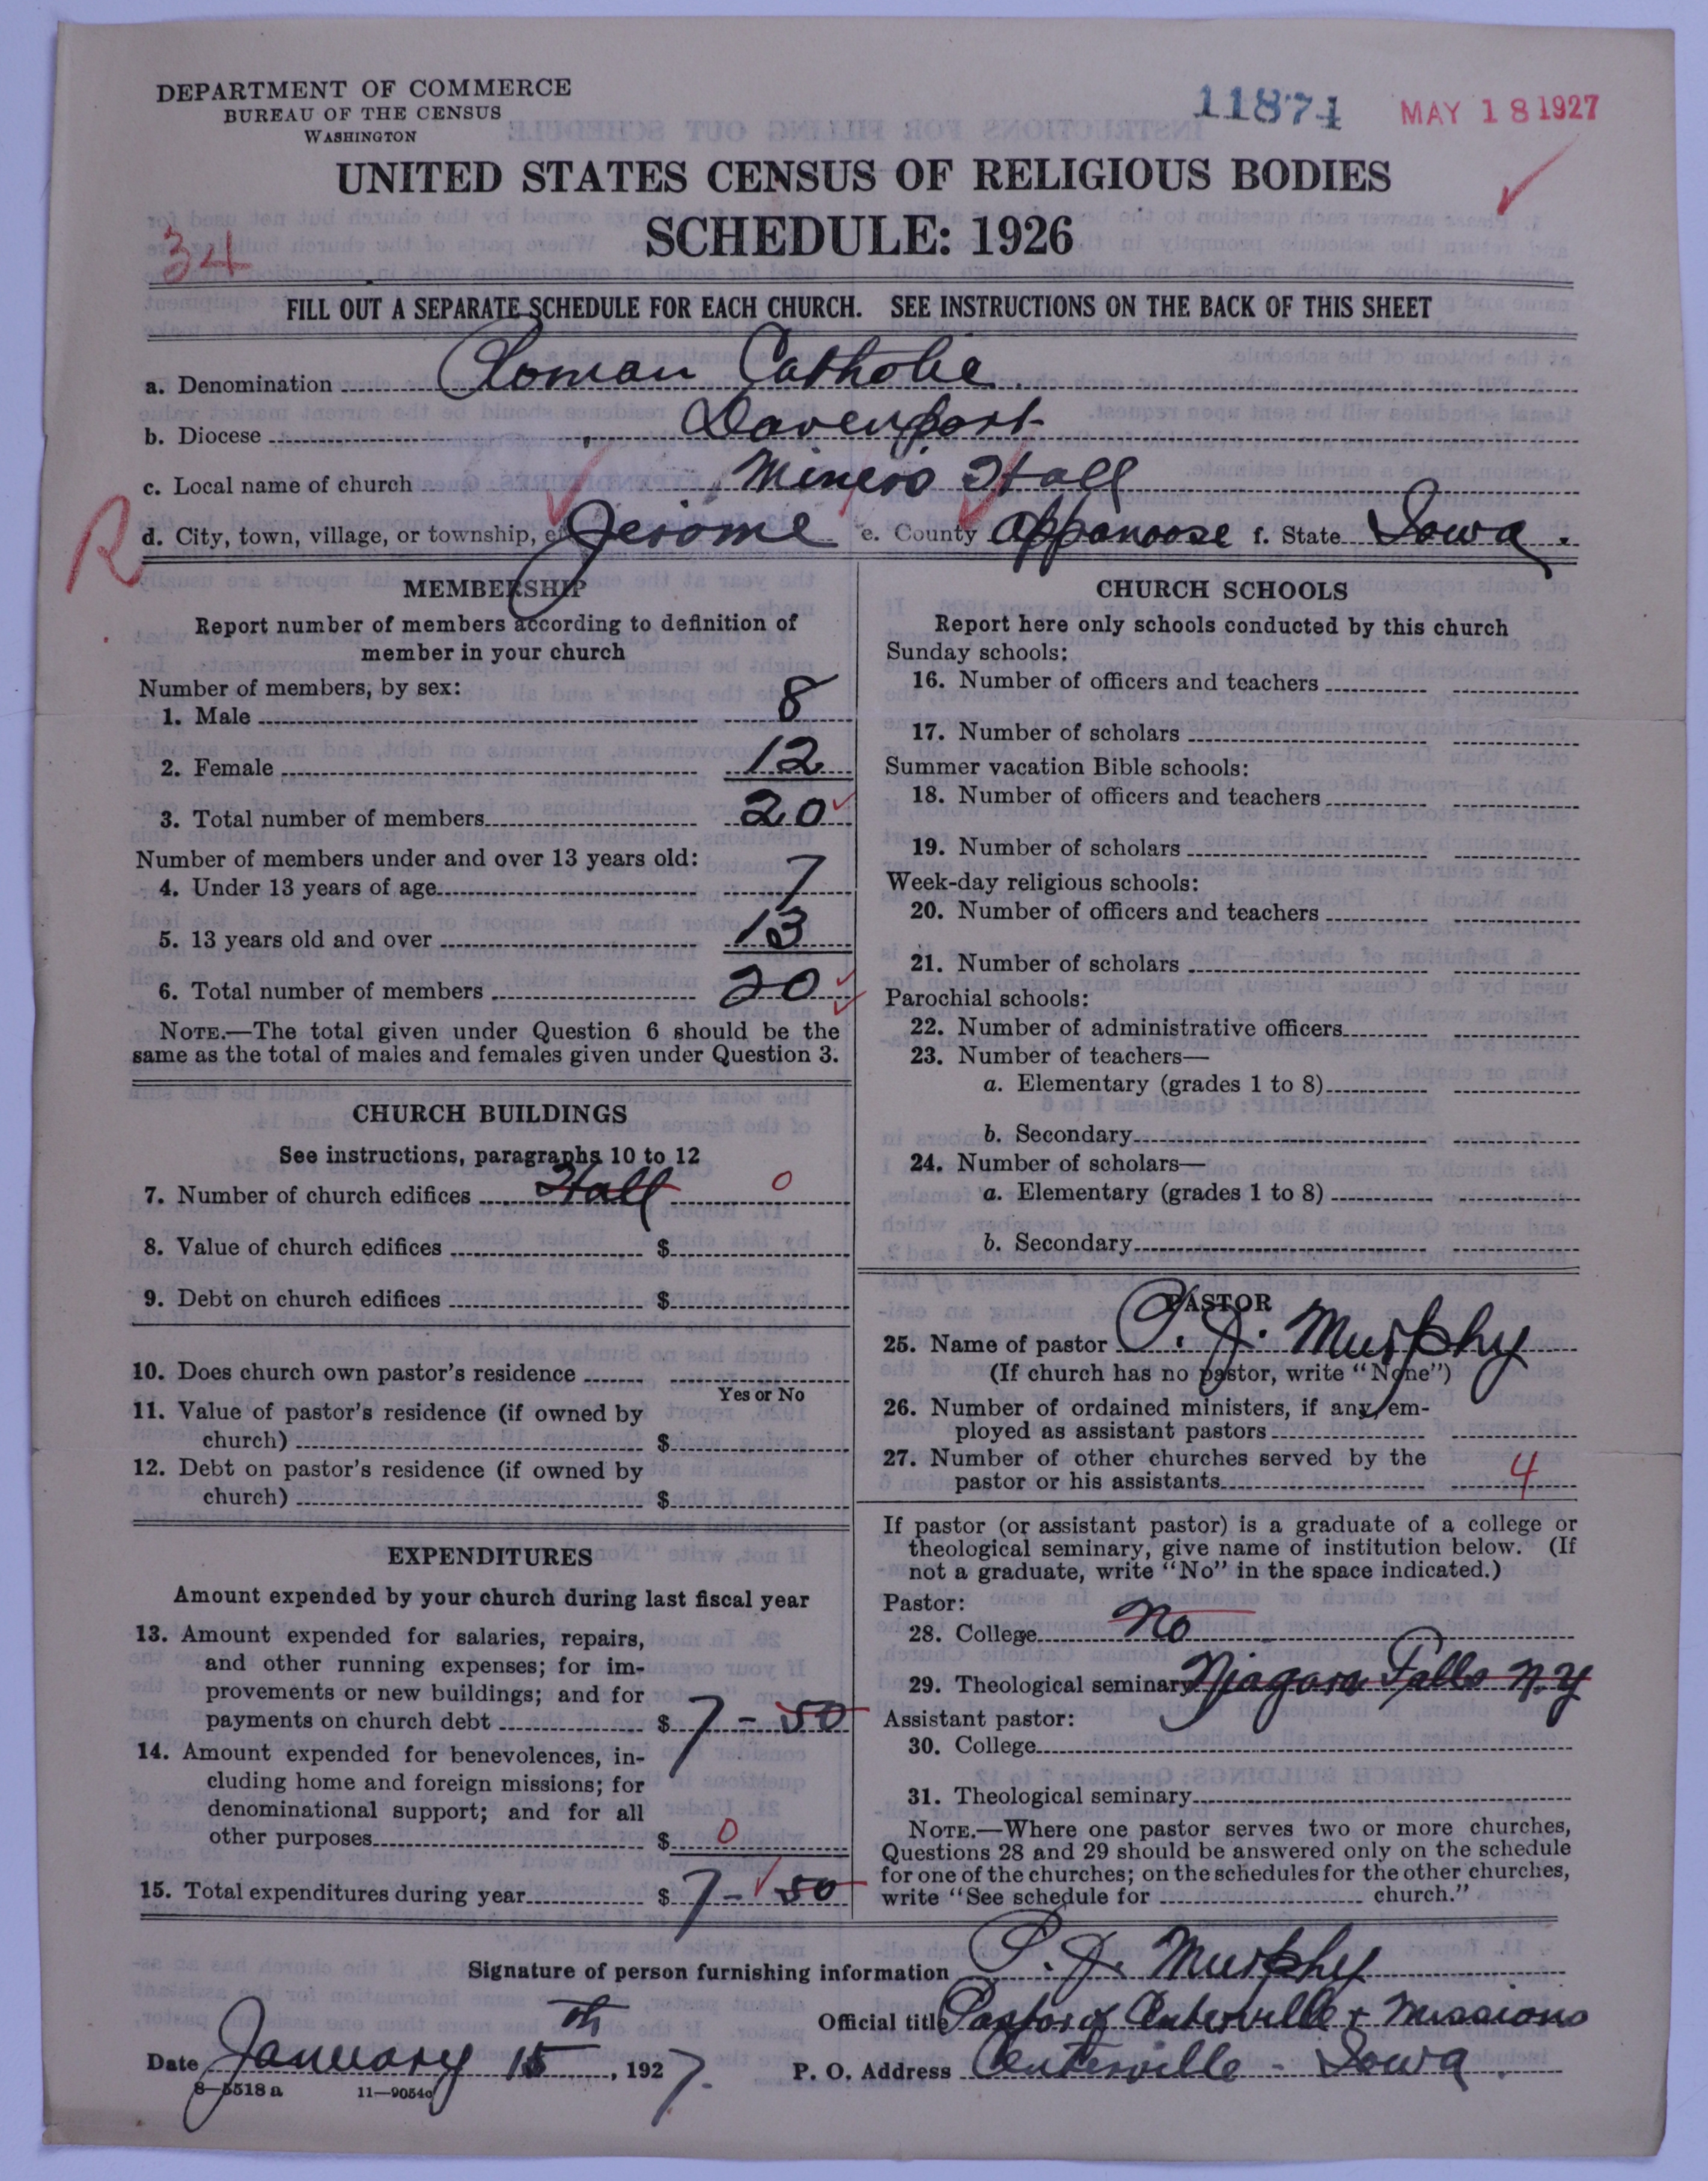 DEPARTMENT OF COMMERCE
BUREAU OF THE CENSUS
WASHINGTON
11874 MAY 18 1927
UNITED STATES CENSUS OF RELIGIOUS BODIES
SCHEDULE: 1926
34
FILL OUT A SEPARATE SCHEDULE FOR EACH CHURCH. SEE INSTRUCTIONS ON THE BACK OF THIS SHEET
a. Denomination Roman Catholic
b. Diocese Davenport
c. Local name of church Miners Hall
R
d. City, town, village, or township, etc. Jerome e. County Appanoose f. State Iowa.
MEMBERSHIP
Report number of members according to definition of
member in your church
Number of members, by sex:
1. Male 8
2. Female 12
3. Total number of members 20
Number of members under and over 13 years old:
4. Under 13 years of age 7
5. 13 years old and over 13
6. Total number of members 20
NOTE.—The total given under Question 6 should be the
same as the total of males and females given under Question 3.
CHURCH BUILDINGS
See instructions, paragraphs 10 to 12
7. Number of church edifices Hall 0
8. Value of church edifices $
9. Debt on church edifices $
10. Does church own pastor's residence
Yes or No
11. Value of pastor's residence (if owned by
church) $
12. Debt on pastor's residence (if owned by
church) $
EXPENDITURES
Amount expended by your church during last fiscal year
13. Amount expended for salaries, repairs,
and other running expenses; for im-
provements or new buildings; and for
payments on church debt $ 7-50
14. Amount expended for benevolences, in-
cluding home and foreign missions; for
denominational support; and for all
other purposes $ 0
15. Total expenditures during year $ 7-50
CHURCH SCHOOLS
Report here only schools conducted by this church
Sunday schools:
16. Number of officers and teachers
17. Number of scholars
Summer vacation Bible schools:
18. Number of officers and teachers
19. Number of scholars
Week-day religious schools:
20. Number of officers and teachers
21. Number of scholars
Parochial schools:
22. Number of administrative officers
23. Number of teachers—
a. Elementary (grades 1 to 8)
b. Secondary
24. Number of scholars—
a. Elementary (grades 1 to 8)
b. Secondary
PASTOR
25. Name of pastor P. J. Murphy
(If church has no pastor, write "None")
26. Number of ordained ministers, if any, em-
ployed as assistant pastors
27. Number of other churches served by the
pastor or his assistants 4
If pastor (or assistant pastor) is a graduate of a college or
theological seminary, give name of institution below. (If
not a graduate, write "No" in the space indicated.)
Pastor:
28. College No
29. Theological seminary Niagara Falls N.Y
Assistant pastor:
30. College
31. Theological seminary
NOTE.—Where one pastor serves two or more churches,
Questions 28 and 29 should be answered only on the schedule
for one of the churches; on the schedules for the other churches,
write "See schedule for church."
Signature of person furnishing information P. J. Murphy
Official title Pastor of Centerville + Missions
Date January 15th, 1927. P. O. Address Centerville - Iowa.
8—5518a 11—9054c